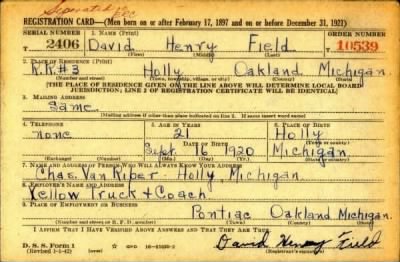 Separated Dec
REGISTRATION CARD—(Men born on or after February 17, 1897 and on or before December 31, 1921)
SERIAL NUMBER 1. NAME (Print) ORDER NUMBER
T 2406 David Henry Field 10539
(First) (Middle) (Last)
2. PLACE OF RESIDENCE (Print)
R.R.#3 Holly Oakland Michigan
(Number and street) (Town, township, village, or city) (County) (State)
[THE PLACE OF RESIDENCE GIVEN ON THE LINE ABOVE WILL DETERMINE LOCAL BOARD
JURISDICTION; LINE 2 OF REGISTRATION CERTIFICATE WILL BE IDENTICAL]
3. MAILING ADDRESS
Same
[Mailing address if other than place indicated on line 2. If same insert word same]
4. TELEPHONE 5. AGE IN YEARS 6. PLACE OF BIRTH
none 21 Holly
DATE OF BIRTH (Town or county)
Sept. 16 1920 Michigan
(Exchange) (Number) (Mo.) (Day) (Yr.) (State or country)
7. NAME AND ADDRESS OF PERSON WHO WILL ALWAYS KNOW YOUR ADDRESS
Chas. Van Riper Holly Michigan
8. EMPLOYER'S NAME AND ADDRESS
Yellow Truck + Coach
9. PLACE OF EMPLOYMENT OR BUSINESS
Pontiac Oakland Michigan
(Number and street or R. F. D. number) (Town) (County) (State)
I AFFIRM THAT I HAVE VERIFIED ABOVE ANSWERS AND THAT THEY ARE TRUE.
D. S. S. Form 1 David Henry Field
(Revised 1-1-42) (Registrant's signature)